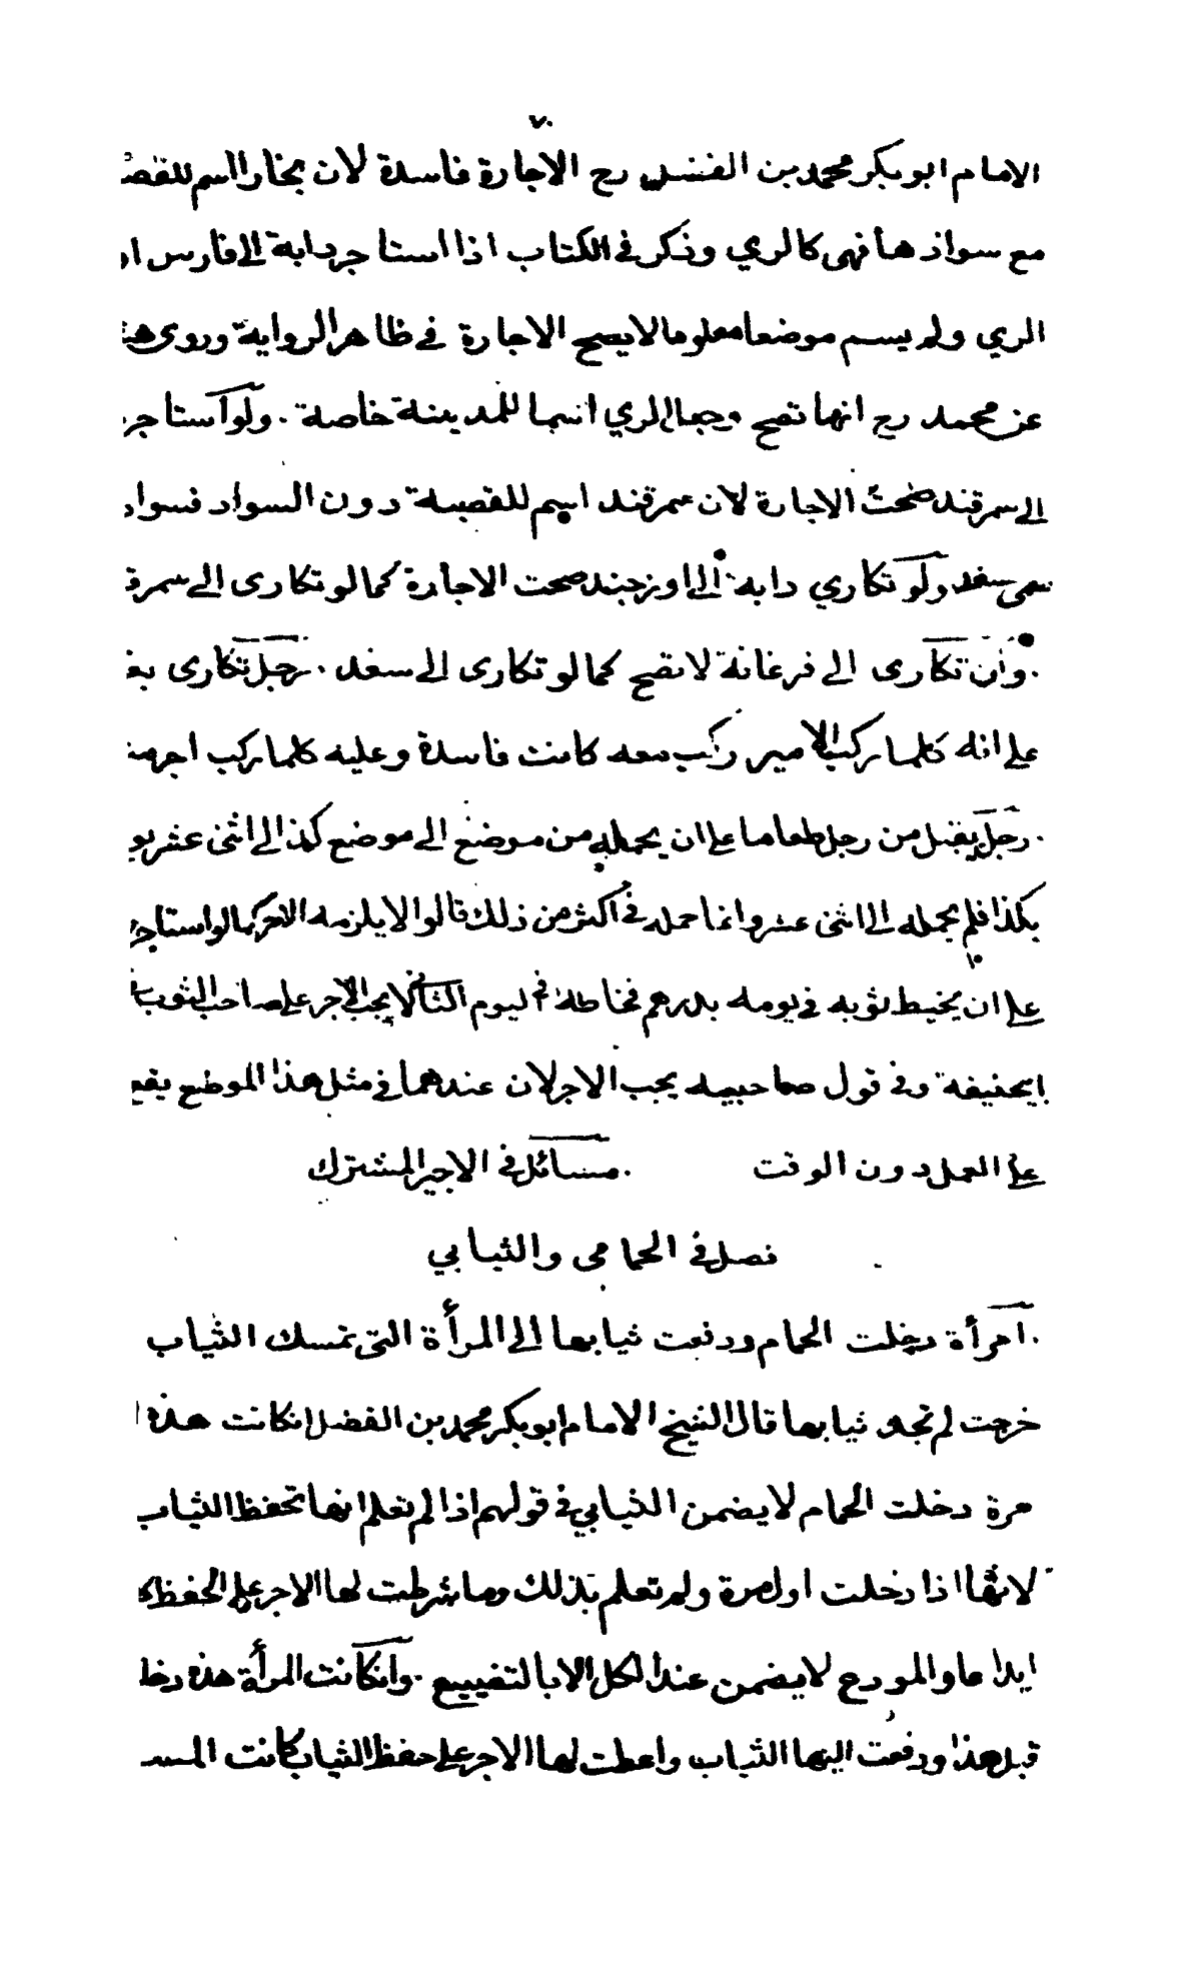 ٧٠
الامام ابو بكر محمد بن الفضل رح الاجارة فاسدة لان بخارا اسم للقصبـ
مع سوادها فهى كالري وذكر في الكتاب اذا استاجر دابة الى فارس او
الري ولم يسم موضعا معلوما لا يصح الاجارة في ظاهر الرواية وروى هشـ
عن محمد رح انها تصح وجعل الري اسما للمدينة خاصة . ولو استاجر
الى سمرقند صحت الاجارة لان سمرقند اسم للقصبة دون السواد فسواد
سمى سغد ولو تكاري دابة الى اوزجند صحت الاجارة كما لو تكارى الى سمرقـ
. وان تكارى الى فرغانة لا تصح كما لو تكارى الى سغد . رجل تكارى بغـ
على انه كلما ركب الامير ركب معه كانت فاسدة وعليه كلما ركب اجر مـ
. رجل يقبل من رجل طعاما على ان يحمله من موضع الى موضع كذا الى اثنى عشر يو
بكذا فلم يحمله الى اثنى عشر وانما حمله في اكثر من ذلك قالوا لا يلزمه الاجر كما لو استاجر
على ان يخيط ثوبه في يومه بدرهم فخاطه في اليوم الثانى لا يجب الاجر على صاحب الثوب
ابحنيفة وفي قول صاحبيه يجب الاجر لان عندهما في مثل هذا الموضع يقع
على العمل دون الوقت . مسائل في الاجير المشترك
فصل في الحمامى والثيابي
. امرأة دخلت الحمام ودفعت ثيابها الى المرأة التى تمسك الثياب
خرجت لم تجد ثيابها قال الشيخ الامام ابو بكر محمد بن الفضل ان كانت هذه ا
مرة دخلت الحمام لا يضمن الثيابي في قولهم اذا لم تعلم انها تحفظ الثياب
لانها اذا دخلت اول مرة ولم تعلم بذلك وما شرطت لها الاجر على الحفظ كا
ايداعا والمودع لا يضمن عند الكل الا بالتضييع . وان كانت المرأة هذه دخلـ
قبل هذا ودفعت اليها الثياب واعطت لها الاجر على حفظ الثياب كانت المسـ